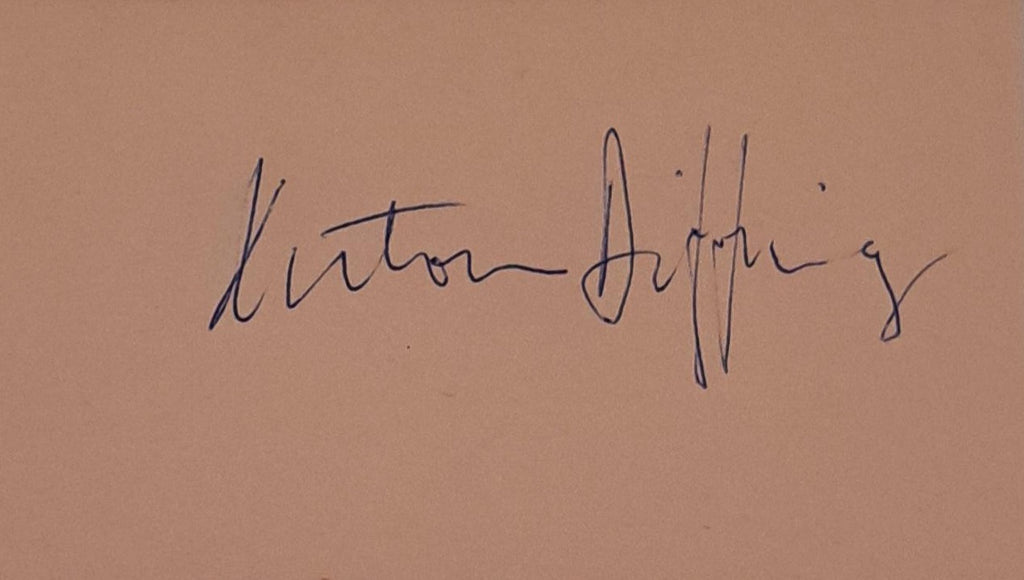 Anton Diffring